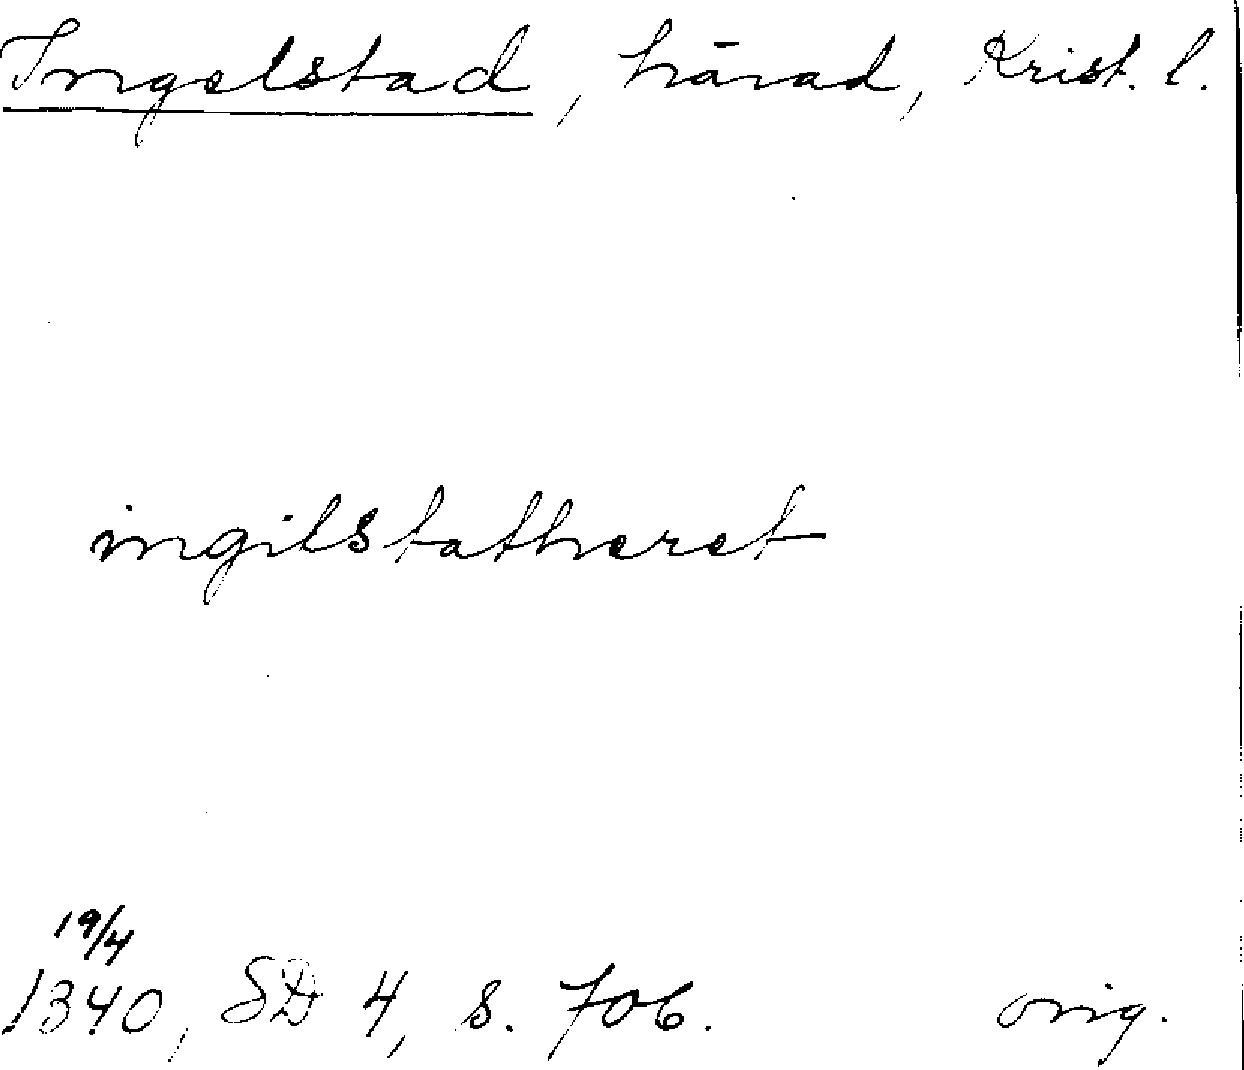 Ingelstad, härad, Krist. l.
ingilstatheret
19/4
1340, SD 4, s. 706. orig.